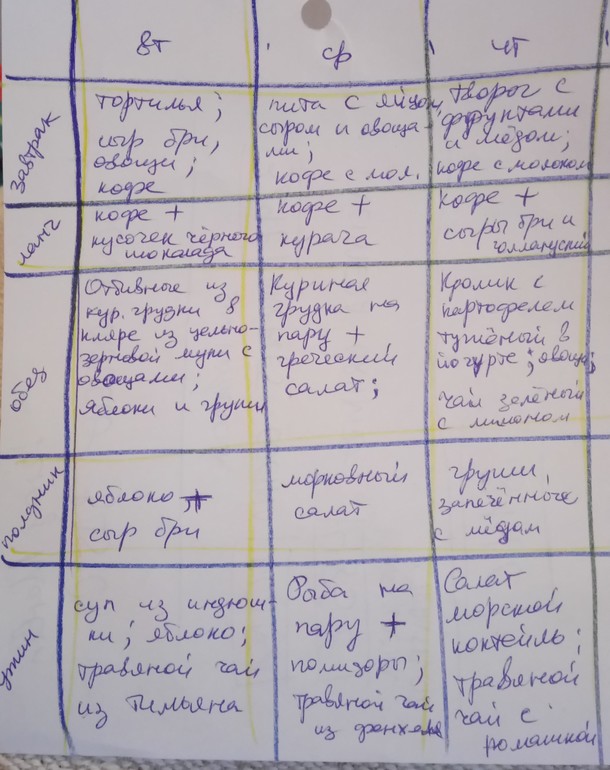 вт
ср
чт
завтрак
тортилья;
сыр бри,
овощи;
кофе
пита с яйцом
сыром и овоща-
ми;
кофе с мол.
творог с
фруктами
и мёдом;
кофе с молоком
ланч
кофе +
кусочек чёрного
шоколада
кофе +
курага
кофе +
сыры бри и
голландский
обед
Отбивные из
кур. грудки в
кляре из цельно-
зерновой муки с
овощами;
яблоки и груши
Куриная
грудка на
пару +
греческий
салат;
Кролик с
картофелем
тушёный в
йогурте; овощи;
чай зелёный
с лимоном
полдник
яблоко +
сыр бри
морковный
салат
груши,
запечённые
с мёдом
ужин
суп из индюш-
ки; яблоко;
травяной чай
из тимьяна
Рыба на
пару +
помидоры;
травяной чай
из фенхеля
Салат
морской
коктейль;
травяной
чай с
ромашкой